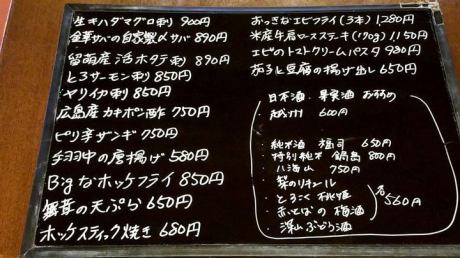 生キハダマグロ刺 900円
金華サバの自家製〆サバ 890円
留萌産 活ホタテ刺 890円
とろサーモン刺 850円
ヤリイカ刺 850円
広島産カキポン酢 750円
ピリ辛ザンギ 750円
手羽中の唐揚げ 580円
Bigなホッケフライ 850円
舞茸の天ぷら 650円
ホッケスティック焼き 680円
おっきなエビフライ(3本) 1,280円
米産牛肩ロースステーキ(190g) 1150円
エビのトマトクリームパスタ 930円
茄子と豆腐の揚げ出し 650円
日本酒・果実酒 おすすめ
600円
・純米酒 福司 650円
・特別純米 鍋島 800円
・八海山 750円
・梨のリキュール
・とろこく 桃姫
・赤いとばの梅酒
・深山ぶどう酒
各560円